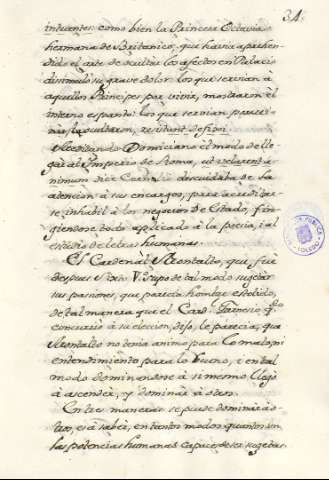 34.
intuentes: como bien la Princesa Octavia
hermana de Britanico, que havia aprehen-
dido el arte de ocultar los afectos en Palacio
disimuló su grave dolor los que servian à
aquellos Principes por vivir, mostraron el
interno espanto: los que servian para
lo ocultaron, resistunt defixi.
Meditando Domiciano el modo de lle-
gar al Imperio de Roma, ut velaret a-
nimum dice descuidaba de la
atencion à sus encargos, para acreditar-
se inhabil à los negocios de Estado, fin-
giendose todo aplicado à la poesia, i al
estudio de letras humanas.
El Cardenal Montalto, que fue
despues Sixto V. supo de tal modo sugetar
sus pasiones, que parecia hombre estolido,
de tal manera que el Card. Farnesio qdo
concurrió à su eleccion, dijo, le parecia, que
Montalto no tenia animo para lo malo, ni
entendimiento para lo bueno, i en tal
modo dominandose à si mesmo llegó
à ascender, y dominar à otros.
En tres maneras se puede dominar à o-
tros, es à saber, en tantos modos quantos son
las potencias humanas capaces de ser sugetas
TOLEDO